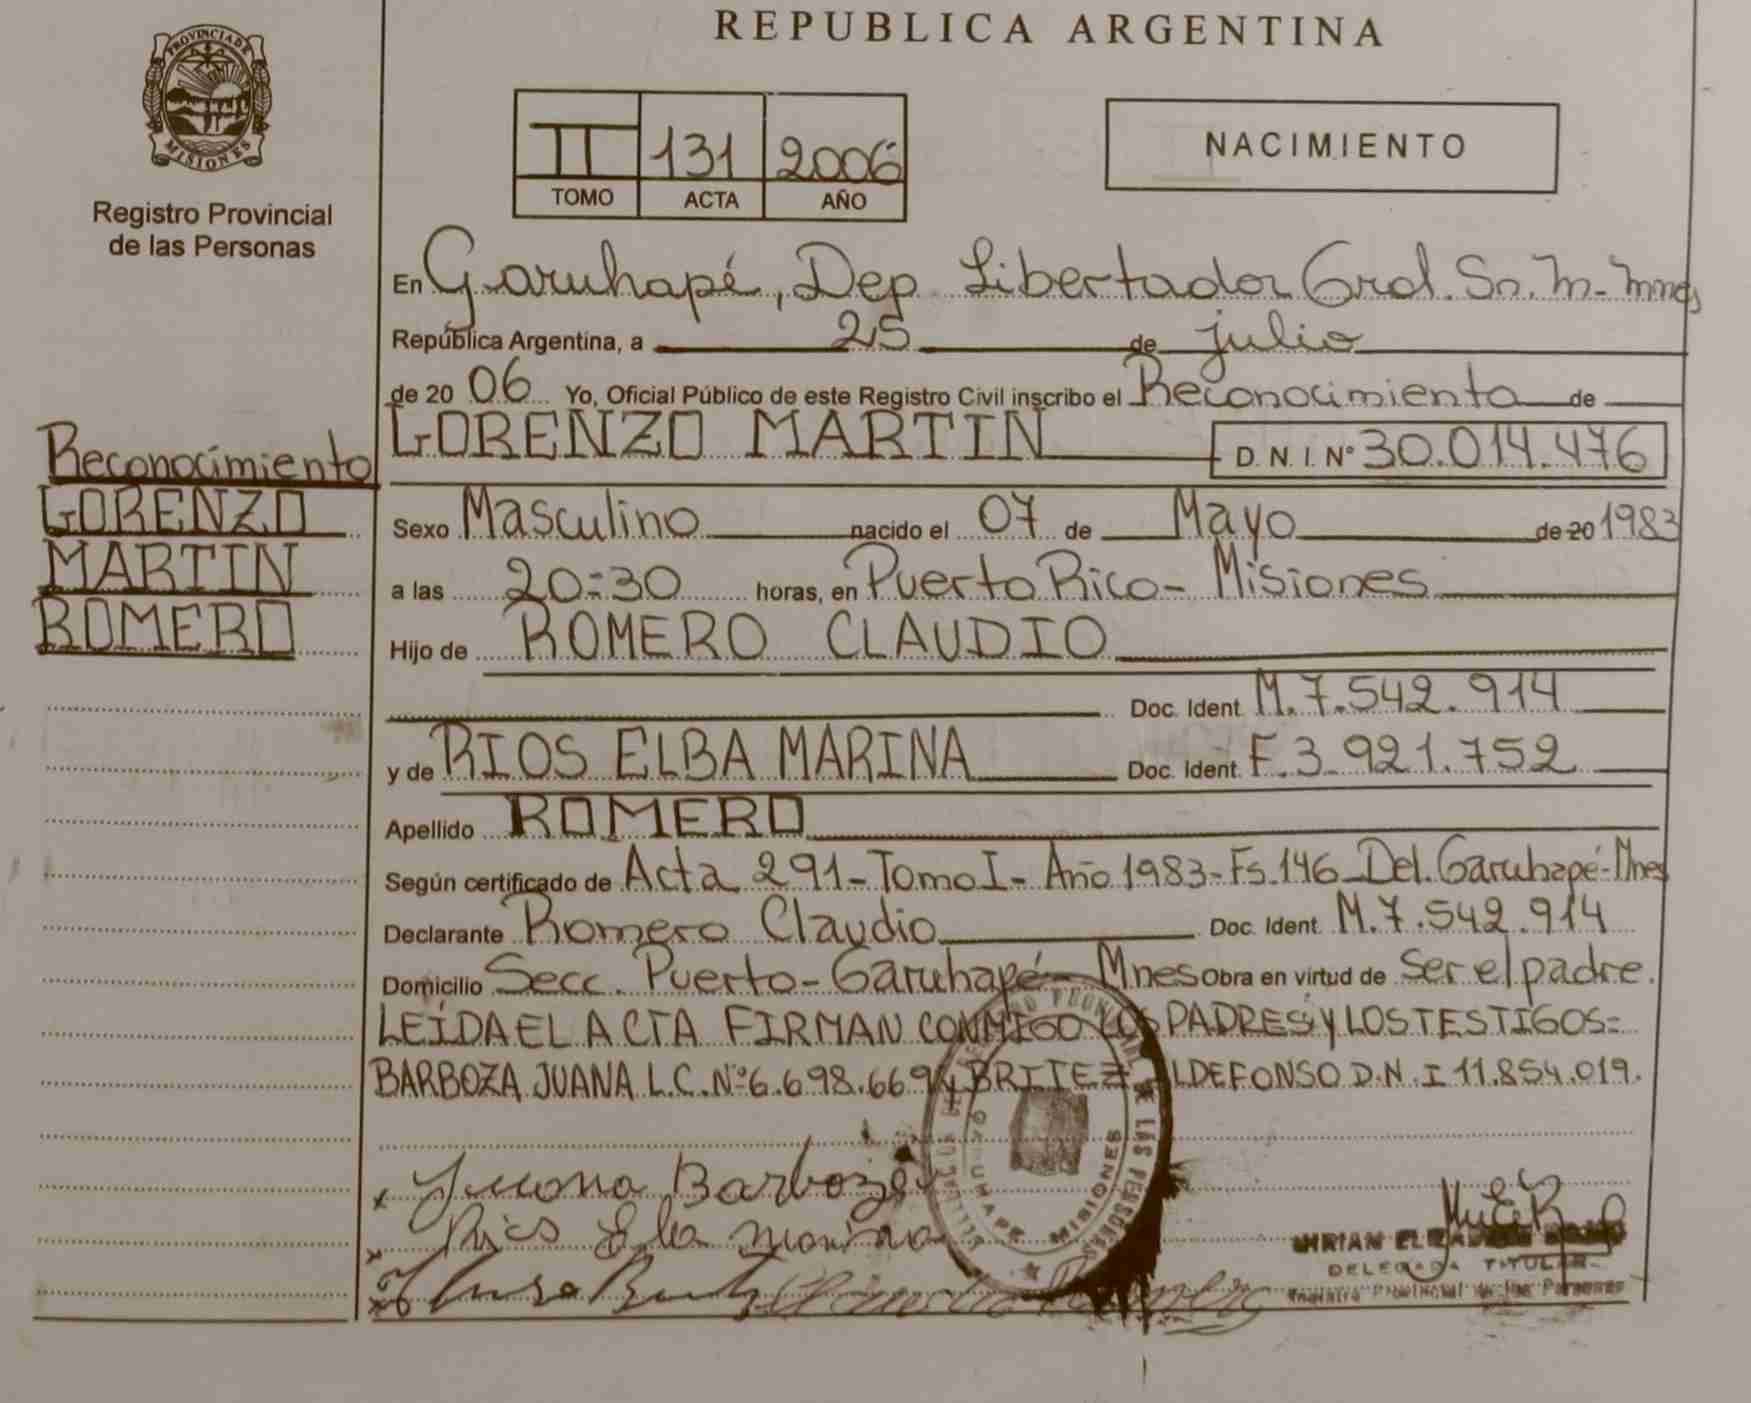 REPUBLICA ARGENTINA
PROVINCIA DE
MISIONES
Registro Provincial
de las Personas
II 131 2006
TOMO ACTA AÑO
NACIMIENTO
En Garuhapé, Dep. Libertador Gral. Sn. M- Mnes
República Argentina, a 25 de julio
de 20 06 Yo, Oficial Público de este Registro Civil inscribo el Reconocimiento de
LORENZO MARTIN D. N. I. Nº 30.014.476
Reconocimiento
LORENZO
MARTIN
ROMERO
Sexo Masculino nacido el 07 de Mayo de 20 1983
a las 20:30 horas, en Puerto Rico- Misiones
Hijo de ROMERO CLAUDIO
Doc. Ident. M.7.542.914
y de RIOS ELBA MARINA Doc. Ident. F.3.921.752
Apellido ROMERO
Según certificado de Acta 291-Tomo I- Año 1983-Fs.146-Del. Garuhapé-Mnes
Declarante Romero Claudio Doc. Ident. M.7.542.914
Domicilio Secc. Puerto-Garuhapé- Mnes Obra en virtud de Ser el padre.
LEÍDA EL ACTA FIRMAN CONMIGO LOS PADRES Y LOS TESTIGOS=
BARBOZA JUANA L.C.Nº6.698.669 y BRITEZ ILDEFONSO D.N.I 11.854.019.
Juana Barboza
Rios Elba marina
GARUHAPE MISIONES
DE LAS PERSONAS
MIRIAN
DELEGADA TITULAR
Registro Provincial de las Personas